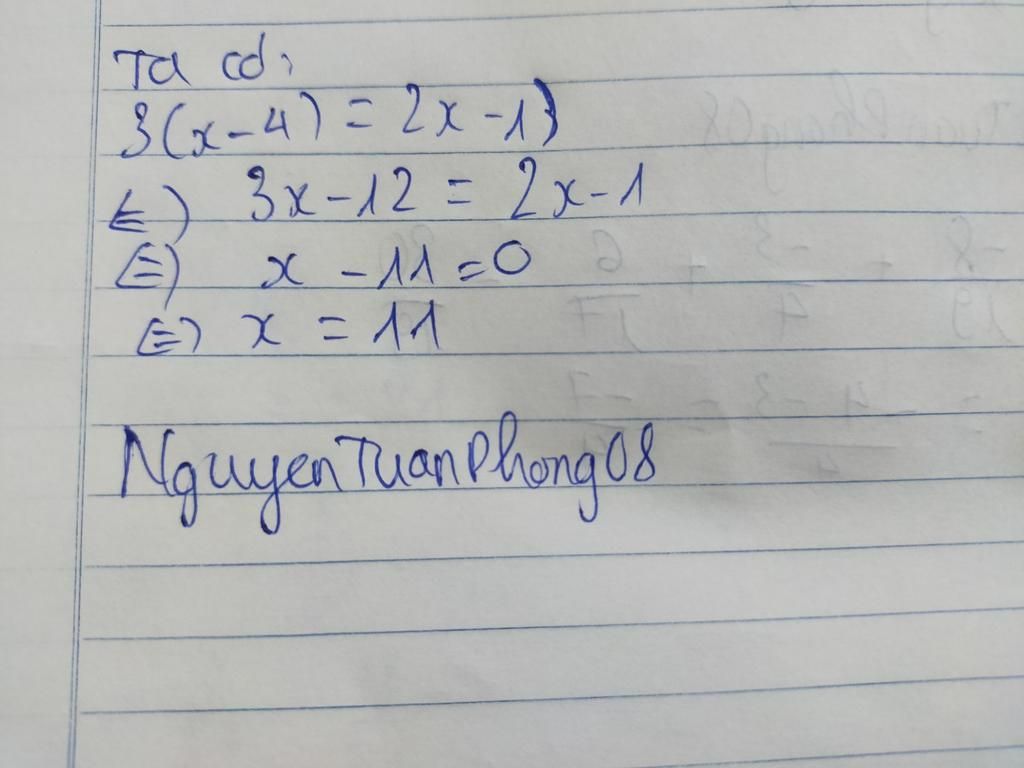 Ta có:
3(x-4) = 2x-1)
<=) 3x-12 = 2x-1
(=) x -11 = 0
(=) x = 11
NguyenTuanPhong08